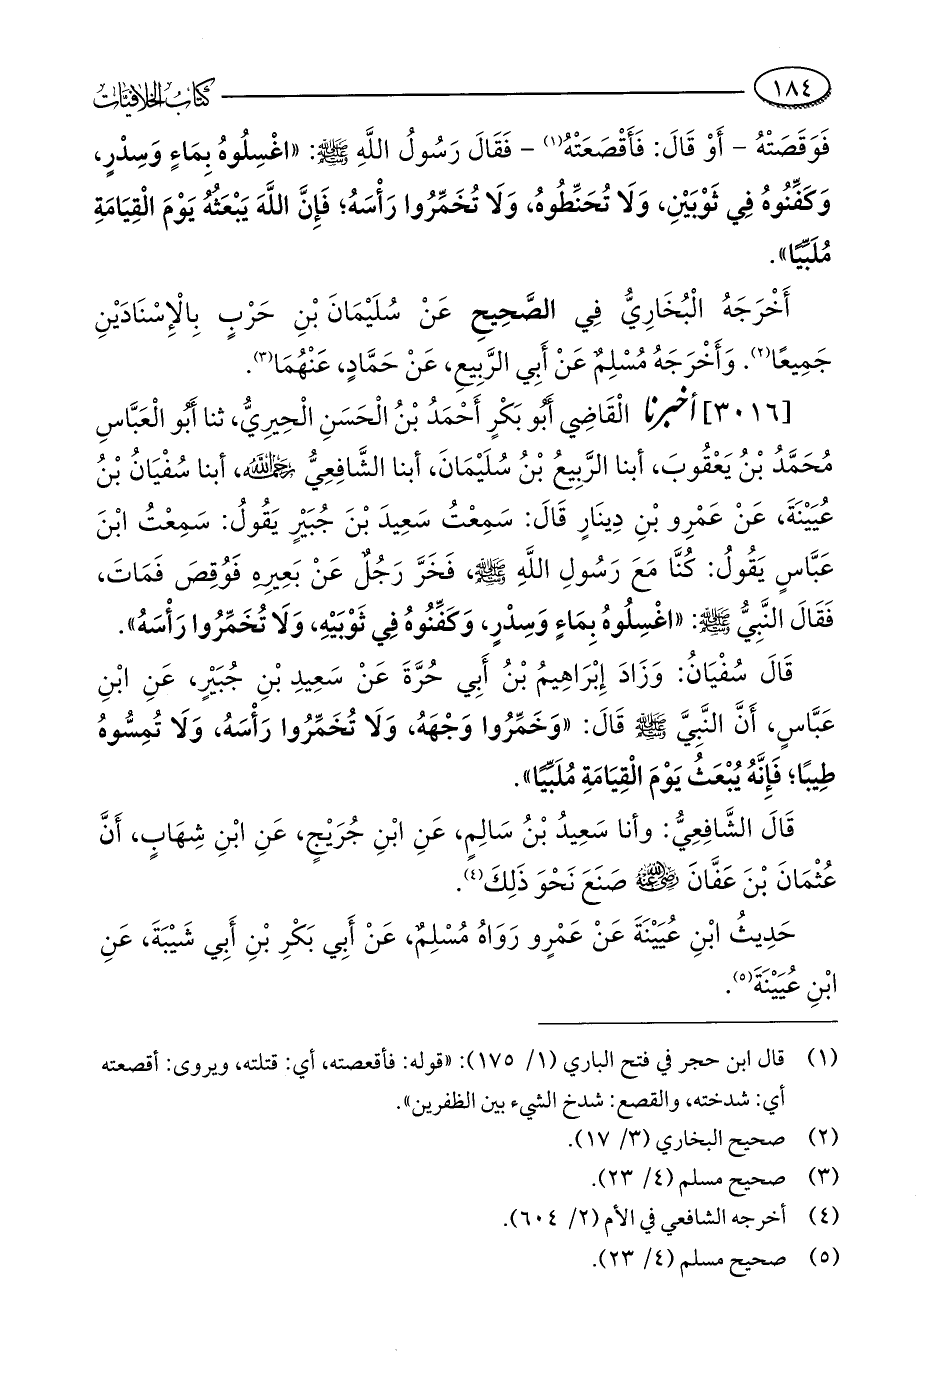 ١٨٤ كتاب الخلافيات
فَوَقَصَتْهُ - أَوْ قَالَ: فَأَقْصَعَتْهُ(١) - فَقَالَ رَسُولُ اللَّهِ ﷺ: «اغْسِلُوهُ بِمَاءٍ وَسِدْرٍ،
وَكَفِّنُوهُ فِي ثَوْبَيْنِ، وَلَا تُحَنِّطُوهُ، وَلَا تُخَمِّرُوا رَأْسَهُ؛ فَإِنَّ اللَّهَ يَبْعَثُهُ يَوْمَ الْقِيَامَةِ
مُلَبِّيًا».
أَخْرَجَهُ الْبُخَارِيُّ فِي الصَّحِيحِ عَنْ سُلَيْمَانَ بْنِ حَرْبٍ بِالْإِسْنَادَيْنِ
جَمِيعًا(٢). وَأَخْرَجَهُ مُسْلِمٌ عَنْ أَبِي الرَّبِيعِ، عَنْ حَمَّادٍ، عَنْهُمَا(٣).
[٣٠١٦] أخبرنا الْقَاضِي أَبُو بَكْرٍ أَحْمَدُ بْنُ الْحَسَنِ الْحِيرِيُّ، ثنا أَبُو الْعَبَّاسِ
مُحَمَّدُ بْنُ يَعْقُوبَ، أبنا الرَّبِيعُ بْنُ سُلَيْمَانَ، أبنا الشَّافِعِيُّ رحمه الله، أبنا سُفْيَانُ بْنُ
عُيَيْنَةَ، عَنْ عَمْرِو بْنِ دِينَارٍ قَالَ: سَمِعْتُ سَعِيدَ بْنَ جُبَيْرٍ يَقُولُ: سَمِعْتُ ابْنَ
عَبَّاسٍ يَقُولُ: كُنَّا مَعَ رَسُولِ اللَّهِ ﷺ، فَخَرَّ رَجُلٌ عَنْ بَعِيرِهِ فَوُقِصَ فَمَاتَ،
فَقَالَ النَّبِيُّ ﷺ: «اغْسِلُوهُ بِمَاءٍ وَسِدْرٍ، وَكَفِّنُوهُ فِي ثَوْبَيْهِ، وَلَا تُخَمِّرُوا رَأْسَهُ».
قَالَ سُفْيَانُ: وَزَادَ إِبْرَاهِيمُ بْنُ أَبِي حُرَّةَ عَنْ سَعِيدِ بْنِ جُبَيْرٍ، عَنِ ابْنِ
عَبَّاسٍ، أَنَّ النَّبِيَّ ﷺ قَالَ: «وَخَمِّرُوا وَجْهَهُ، وَلَا تُخَمِّرُوا رَأْسَهُ، وَلَا تُمِسُّوهُ
طِيبًا؛ فَإِنَّهُ يُبْعَثُ يَوْمَ الْقِيَامَةِ مُلَبِّيًا».
قَالَ الشَّافِعِيُّ: وأنا سَعِيدُ بْنُ سَالِمٍ، عَنِ ابْنِ جُرَيْجٍ، عَنِ ابْنِ شِهَابٍ، أَنَّ
عُثْمَانَ بْنَ عَفَّانَ رضي الله عنه صَنَعَ نَحْوَ ذَلِكَ(٤).
حَدِيثُ ابْنِ عُيَيْنَةَ عَنْ عَمْرٍو رَوَاهُ مُسْلِمٌ، عَنْ أَبِي بَكْرِ بْنِ أَبِي شَيْبَةَ، عَنِ
ابْنِ عُيَيْنَةَ(٥).
(١) قال ابن حجر في فتح الباري (١/ ١٧٥): «قوله: فأقعصته، أي: قتلته، ويروى: أقصعته
أي: شدخته، والقصع: شدخ الشيء بين الظفرين».
(٢) صحيح البخاري (٣/ ١٧).
(٣) صحيح مسلم (٤/ ٢٣).
(٤) أخرجه الشافعي في الأم (٢/ ٦٠٤).
(٥) صحيح مسلم (٤/ ٢٣).